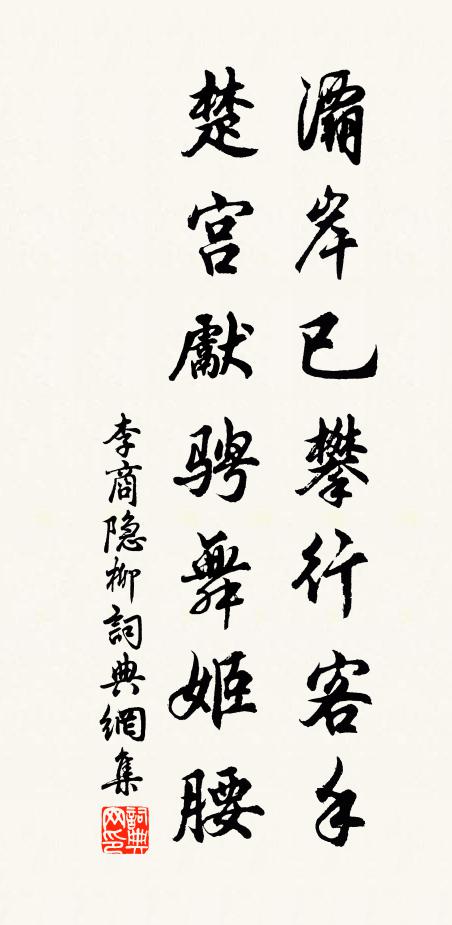 灞岸已攀行客手
楚宫獻騁舞姬腰
李商隐柳詞典網集
詞典網印